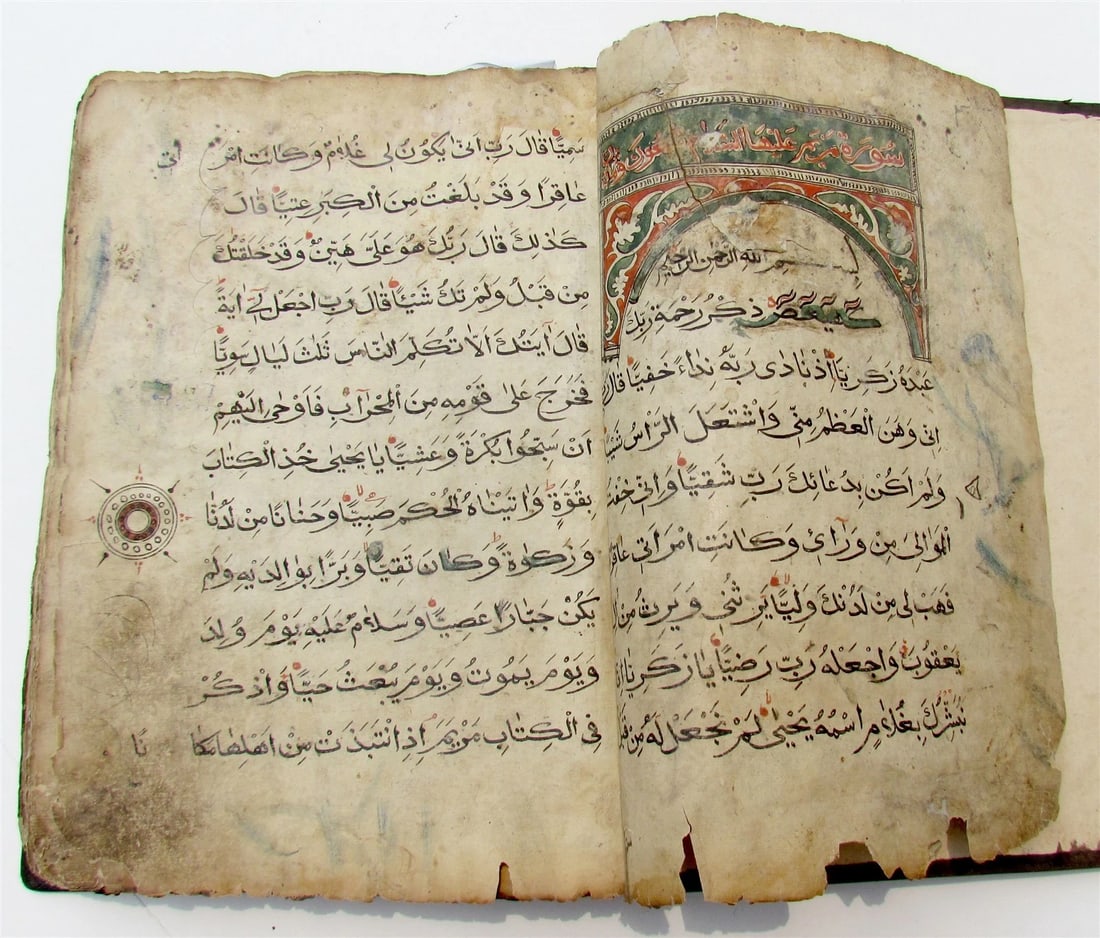 سورة مريم عليها السلام
بسم الله الرحمن الرحيم
كهيعص ذِكْرُ رَحْمَةِ رَبِّكَ
عَبْدَهُ زَكَرِيَّا اِذْ نَادٰى رَبَّهُ نِدَاءً خَفِيًّا قَالَ
اِنّى وَهَنَ الْعَظْمُ مِنّى وَاشْتَعَلَ الرَّاْسُ
وَلَمْ اَكُنْ بِدُعَائِكَ رَبِّ شَقِيًّا وَاِنّى
الْمَوَالِىَ مِنْ وَرَائِى وَكَانَتِ امْرَاَتى
فَهَبْ لى مِنْ لَدُنْكَ وَلِيًّا يَرِثُنى وَيَرِثُ مِنْ
يَعْقُوبَ وَاجْعَلْهُ رَبِّ رَضِيًّا يَا زَكَرِيَّا
نُبَشِّرُكَ بِغُلَامٍ اسْمُهُ يَحْيٰى لَمْ نَجْعَلْ لَهُ مِنْ
سَمِيًّا قَالَ رَبِّ اَنّٰى يَكُونُ لى غُلَامٌ وَكَانَتِ امْرَ
اَتى
عَاقِرًا وَقَدْ بَلَغْتُ مِنَ الْكِبَرِ عِتِيًّا قَالَ
كَذٰلِكَ قَالَ رَبُّكَ هُوَ عَلَىَّ هَيِّنٌ وَقَدْ خَلَقْتُكَ
مِنْ قَبْلُ وَلَمْ تَكُ شَيْئًا قَالَ رَبِّ اجْعَلْ لى اٰيَةً
قَالَ اٰيَتُكَ اَلَّا تُكَلِّمَ النَّاسَ ثَلٰثَ لَيَالٍ سَوِيًّا
فَخَرَجَ عَلٰى قَوْمِهِ مِنَ الْمِحْرَابِ فَاَوْحٰى اِلَيْهِمْ
اَنْ سَبِّحُوا بُكْرَةً وَعَشِيًّا يَا يَحْيٰى خُذِ الْكِتَابَ
بِقُوَّةٍ وَاٰتَيْنَاهُ الْحُكْمَ صَبِيًّا وَحَنَانًا مِنْ لَدُنَّا
وَزَكٰوةً وَكَانَ تَقِيًّا وَبَرًّا بِوَالِدَيْهِ وَلَمْ
يَكُنْ جَبَّارًا عَصِيًّا وَسَلَامٌ عَلَيْهِ يَوْمَ وُلِدَ
وَيَوْمَ يَمُوتُ وَيَوْمَ يُبْعَثُ حَيًّا وَاذْكُرْ
فِى الْكِتَابِ مَرْيَمَ اِذِ انْتَبَذَتْ مِنْ اَهْلِهَا مَكَا
نًا